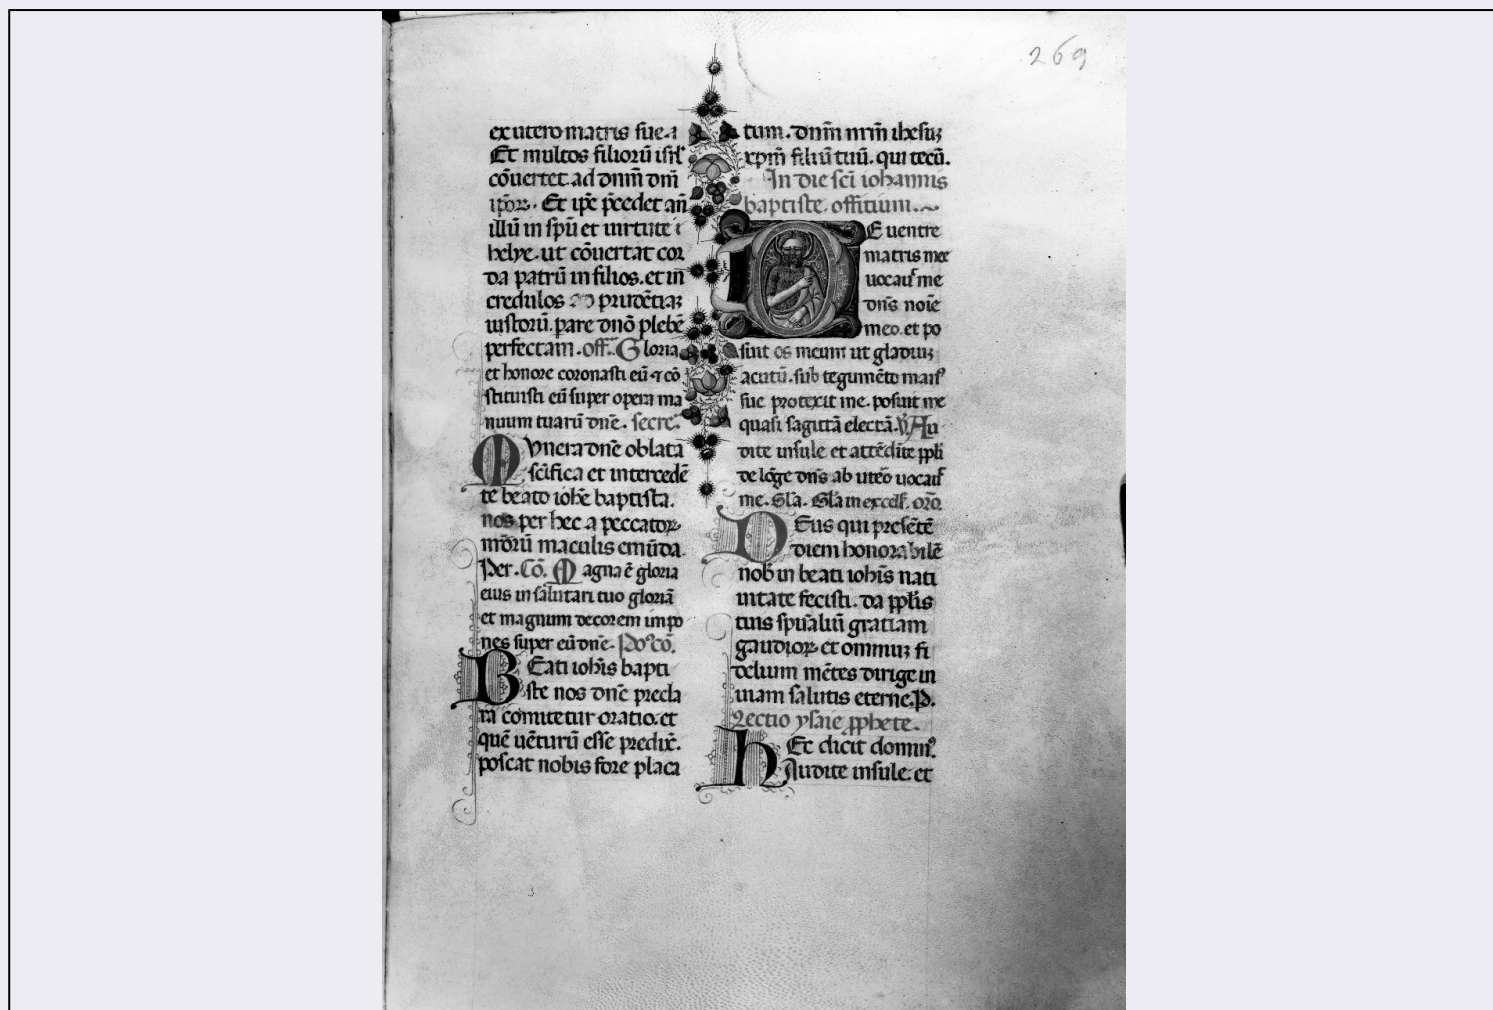 269
ex utero matris sue. i
Et multos filioꝝ isrl̄
cōuertet ad dnm̄ dm̄
ipoꝝ. Et ip̄e p̄cedet an̄
illū in sp̄u et uirtute
helye. ut cōuertat cor
da patrū in filios. et in
credulos prudētiaꝫ
iustorū. parare dnō plebē
perfectam. off. Gloria
et honore coronasti eū ⁊ cō
stituisti eū super opera ma
nuum tuarū dnē. secre.
Munera dnē oblata
scīfica et intercedē
te beato iohē baptista.
nos per hec a peccatoꝝ
nrōrū maculis emūda.
Per. Cō. Magna ē gloria
eius in salutari tuo gloriā
et magnum decorem impo
nes super eū dnē. Po⁹cō.
Beati iohis bapti
ste nos dnē precla
ra comitetur oratio. et
quē uēturū esse predix̄.
poscat nobis fore placa
tum. dnm̄ nrm̄ ihesuꝫ
xpm̄ filiū tuū. qui tecū.
In die scī iohannis
baptiste. offitium.
De uentre
matris mee
uocauit me
dn̄s noīe
meo. et po
suit os meum ut gladiuꝫ
acutū. sub tegumēto man⁹
sue protexit me. posuit me
quasi sagittā electā. V̄. Au
dite insule et attēdite ppl̄i
de lōge dn̄s ab utēo uocaū
me. Glā. Glā in excels̄. orō.
Deus qui presētē
diem honorabilē
nob̄ in beati iohīs nati
uitate fecisti. da ppl̄is
tuis spūaliū gratiam
gaudioꝝ et omniuꝫ fi
delium mētes dirige in
uiam salutis eterne. P.
Lectio ysaie ꝓphete.
Hec dicit domin⁹.
Audite insule. et